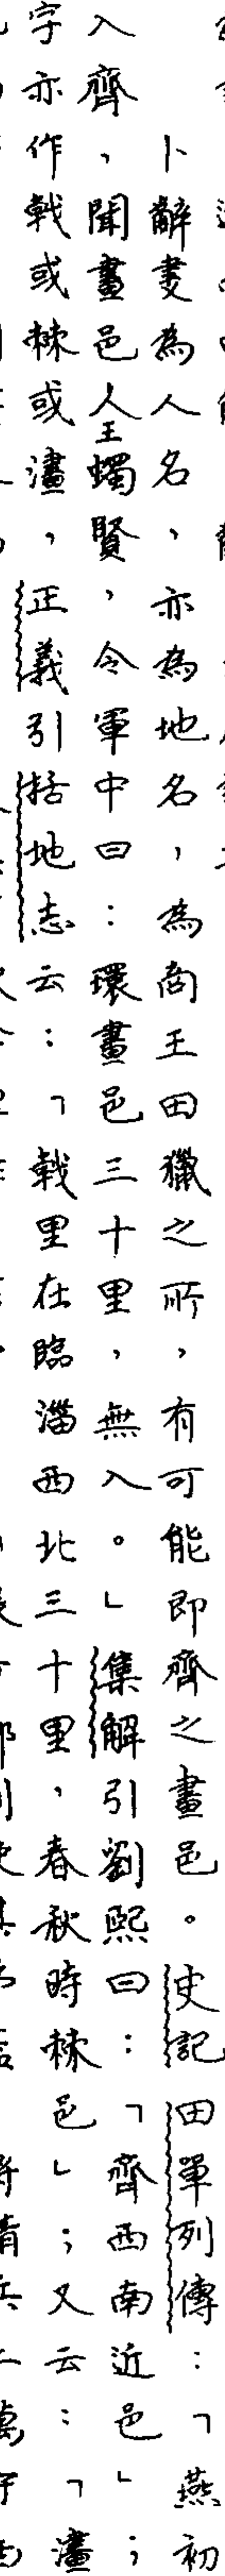 卜辭為人名，亦為地名，為商王田獵之所，有可能即齊之畫邑。史記田單列傳：「燕初
入齊，聞畫邑人王蠋賢，令軍中曰：環畫邑三十里，無入。」集解引劉熙曰：「齊西南近邑」；
字亦作戟或棘或澅，正義引括地志云：「戟里在臨淄西北三十里，春秋時棘邑」；又云：「澅